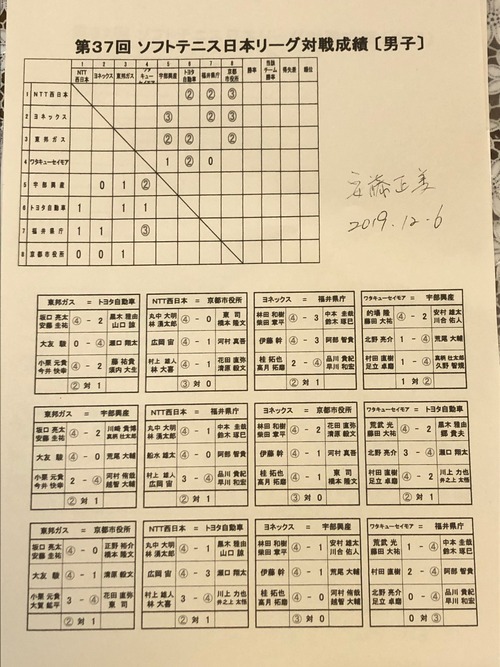 第37回 ソフトテニス日本リーグ対戦成績〔男子〕
1 2 3 4 5 6 7 8
NTT西日本 ヨネックス 東邦ガス ワタキューセイモア 宇部興産 トヨタ自動車 福井県庁 京都市役所 勝率 当該チーム勝率 得失差 順位
1 NTT西日本 ② ② ③
2 ヨネックス ③ ② ③
3 東邦ガス ② ② ②
4 ワタキューセイモア 1 ② 0
5 宇部興産 0 1 ②
6 トヨタ自動車 1 1 1
7 福井県庁 1 1 ③
8 京都市役所 0 0 1
安藤正美
2019.12.6
東邦ガス = トヨタ自動車
坂口 亮太 安藤 圭祐 ④ - 2 黒木 雅由 山口 諒
大友 駿 0 - ④ 瀬口 翔太
小栗 元貴 今井 快幸 ④ - 2 藤 祐貴 須内 大生
② 対 1
NTT西日本 = 京都市役所
丸中 大明 林 湧太郎 ④ - 0 東 司 橋本 隆文
広岡 宙 ④ - 1 河村 真吾
村上 雄人 林 大喜 ④ - 1 花田 直弥 清原 毅文
③ 対 0
ヨネックス = 福井県庁
林田 和樹 柴田 章平 ④ - 3 中本 圭哉 鈴木 琢巳
伊藤 幹 ④ - 3 阿部 智貴
桂 拓也 高月 拓磨 2 - ④ 品川 貴紀 早川 和宏
② 対 1
ワタキューセイモア = 宇部興産
的場 隆 藤田 大祐 ④ - 2 安村 雄太 川合 佑人
北野 亮介 1 - ④ 荒尾 大輔
村田 直樹 足立 卓磨 1 - ④ 真柄 壮太郎 久野 智頼
1 対 ②
東邦ガス = 宇部興産
坂口 亮太 安藤 圭祐 ④ - 2 川崎 貴博 真柄 壮太郎
大友 駿 ④ - 0 荒尾 大輔
小栗 元貴 今井 快幸 2 - ④ 河村 侑哉 越智 大輔
② 対 1
NTT西日本 = 福井県庁
丸中 大明 林 湧太郎 ④ - 1 中本 圭哉 鈴木 琢巳
船水 雄太 ④ - 0 阿部 智貴
村上 雄人 広岡 宙 3 - ④ 品川 貴紀 早川 和宏
② 対 1
ヨネックス = 京都市役所
林田 和樹 柴田 章平 ④ - 2 花田 直弥 清原 毅文
伊藤 幹 ④ - 1 河村 真吾
桂 拓也 高月 拓磨 ④ - 1 東 司 橋本 隆文
③ 対 0
ワタキューセイモア = トヨタ自動車
荒武 光 藤田 大祐 ④ - 2 黒木 雅由 郷 貴夫
北野 亮介 ④ - 3 瀬口 翔太
村田 直樹 足立 卓磨 2 - ④ 川上 力也 井之上 太悟
② 対 1
東邦ガス = 京都市役所
坂口 亮太 安藤 圭祐 ④ - 0 正野 裕介 橋本 隆文
大友 駿 ④ - 1 清原 毅文
小栗 元貴 大賀 紘平 3 - ④ 花田 直弥 東 司
② 対 1
NTT西日本 = トヨタ自動車
丸中 大明 林 湧太郎 ④ - 1 黒木 雅由 山口 諒
広岡 宙 ④ - 3 瀬口 翔太
村上 雄人 林 大喜 3 - ④ 川上 力也 井之上 太悟
② 対 1
ヨネックス = 宇部興産
林田 和樹 柴田 章平 ④ - 1 安村 雄太 川合 佑人
伊藤 幹 ④ - 1 荒尾 大輔
桂 拓也 高月 拓磨 ④ - 0 河村 侑哉 越智 大輔
③ 対 0
ワタキューセイモア = 福井県庁
荒武 光 藤田 大祐 1 - ④ 中本 圭哉 鈴木 琢巳
村田 直樹 2 - ④ 阿部 智貴
北野 亮介 足立 卓磨 0 - ④ 品川 貴紀 早川 和宏
0 対 ③